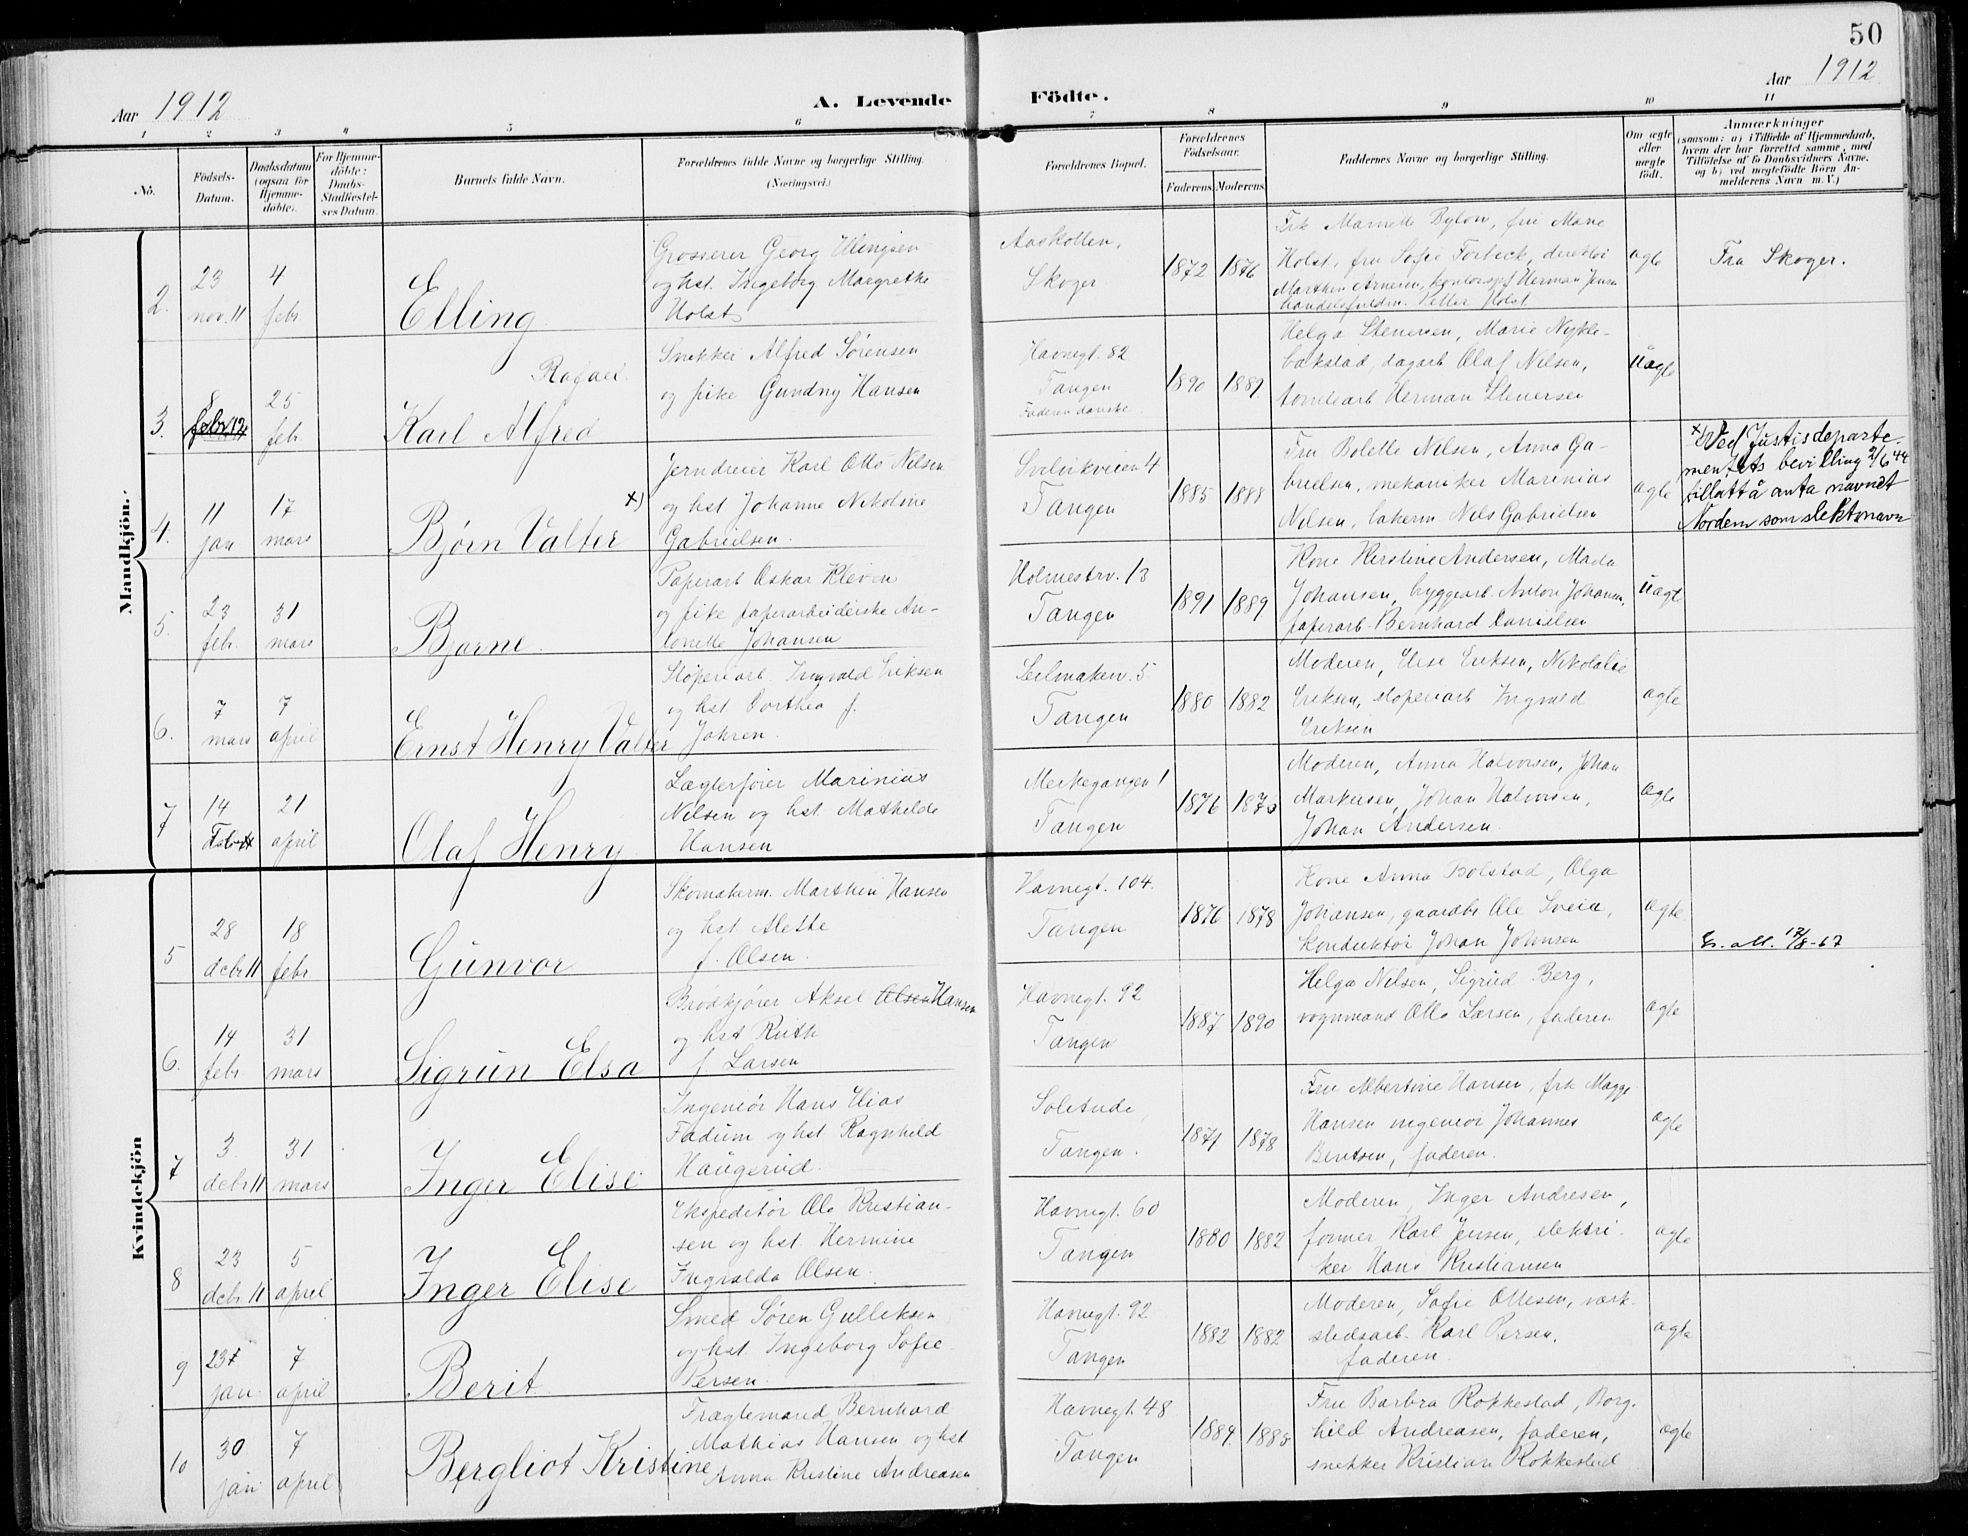 50
Aar 1912
A. Levende Födte.
Aar 1912
1 2 3 4 5 6 7 8 9 10 11
No.
Födsels-
Datum.
Daabsdatum
(ogsaa for
Hjemme-
döbte).
For Hjemme-
döbte:
Daabs-
Stadfæstel-
ses Datum.
Barnets fulde Navn.
Forældrenes fulde Navne og borgerlige Stilling.
(Næringsvei.)
Forældrenes Bopæl.
Forældrenes
Födselsaar.
Faderens Moderens
Faddernes Navne og borgerlige Stilling.
Om ægte
eller
uægte
födt.
Anmærkninger
(saasom: a) i Tilfælde af Hjemmedaab,
hvem der har forrettet samme, med
Tilföielse af to Daabsvidners Navne.
og b) ved uægtefödte Börn An-
melderens Navn m. V.)
Mandkjön.
2. 23 nov. 11
4 febr
Elling
Grosserer Georg
og hst. Ingeborg Margrethe
Holst
Aaskollen,
Skoger
1872 1876
Holst, fru Sofie
Marthin Arnesen, Herman Jensen
Holst
ægte
Fra Skoger.
3. 8 febr 12
25 feb
Rafael
Karl Alfred
Snekker Alfred Sørensen
og pike Gundny Hansen
Havnegt. 82
Tangen
Faderen danske.
1890 1889
Helga Stenersen, Marie Nykle-
bakstad, dagarb Olaf Nilsen,
Herman Stenersen
uægte
4. 11 jan
17 mars
Bjørn Valter x)
Jerndreier Karl Otto Nilsen
og hst Johanne Nikoline
Gabrielsen.
Svelvikveien 4
Tangen
1885 1888
Fru Bolette Nilsen, Anna Ga-
brielsen, mekaniker Marinius
Nilsen, bakerm. Nils Gabrielsen
ægte
x) Ved Justisdeparte-
mentets bevilling 2/6 44
tillatt å anta navnet
Nordem som slektsnavn
5. 23 febr.
31 mars
Bjarne
Papirarb Oskar Kleven
og pike papirarbeiderske An-
tonette Johansen
Holmestrv. 13
Tangen
1891 1889.
Kone Kirstine Andersen,
Johansen, byggearb. Anton Johansen,
papirarb. Bernhard Danielsen
uægte
6. 7 mars
7 april
Ernst Henry Valter
Støperiarb. Ingvald Eriksen
og hst Dorthea f.
Johren.
Seilmakerv. 5
Tangen
1880 1882
Moderen, Else Eriksen, Nikolai
Eriksen, støperiarb Ingvald
Eriksen
ægte
7 14
21 april
Olaf Henry
Marinius
Nilsen og hst. Mathilde
Hansen
Merkegangen 1
Tangen
1876
Moderen, Anna Halvorsen, Johan
Markussen, Johan Halvorsen,
Johan Andersen.
ægte
Kvindekjön
5 28 debr 11
18 febr
Gunvor
Skomakerm. Marthin Hansen
og hst Alette
f. Olsen.
Havnegt. 104.
Tangen
1876 1878
Kone Anna Bolstad, Olga
Johansen, gaardbr Ole Sveia,
konduktør Johan Johnsen
ægte
6. 14 febr
31 mars
Sigrun Elsa
Brødkjører Aksel Olsen Hansen
og hst Ruth
f Larsen
Havnegt. 92
Tangen
1887 1890
Helga Nilsen, Sigrid Berg,
vognmand Otto Larsen, faderen
ægte
7 3. debr 11
31 mars
Inger Elise
Ingeniør Hans Elias
Fadum og hst Ragnhild
Haugerud.
Solitude,
Tangen.
1871 1878
Fru Albertine Hansen, frk Magge
Hansen ingeniør Johannes
Berntsen, faderen.
ægte
8 23 debr. 11
5 april
Inger Elise
Ekspeditør Ole Kristian-
sen og hst. Hermine
Ingvalda Olsen.
Havnegt. 60
Tangen
1880 1882
Moderen, Inger Andresen,
former Karl Jensen, elektri-
ker Hans Kristiansen
ægte
9 jan.
7 april
Berit
Smed Søren Gulliksen
og hst. Ingeborg Sofie
Persen.
Havnegt. 92
Tangen
1882 1882
Moderen, Sofie Ottesen, verk-
stedsarb. Karl Persen,
faderen.
ægte
10 30 jan
7 april
Bergliot Kristine
Bernhard
Mathias Hansen og hst
Anna Kristine Andreasen
Havnegt. 48
Tangen
1884
Fru Barbra Rokkestad, Borg-
hild Andreasen, faderen,
snekker Kristian Rokkestad
ægte